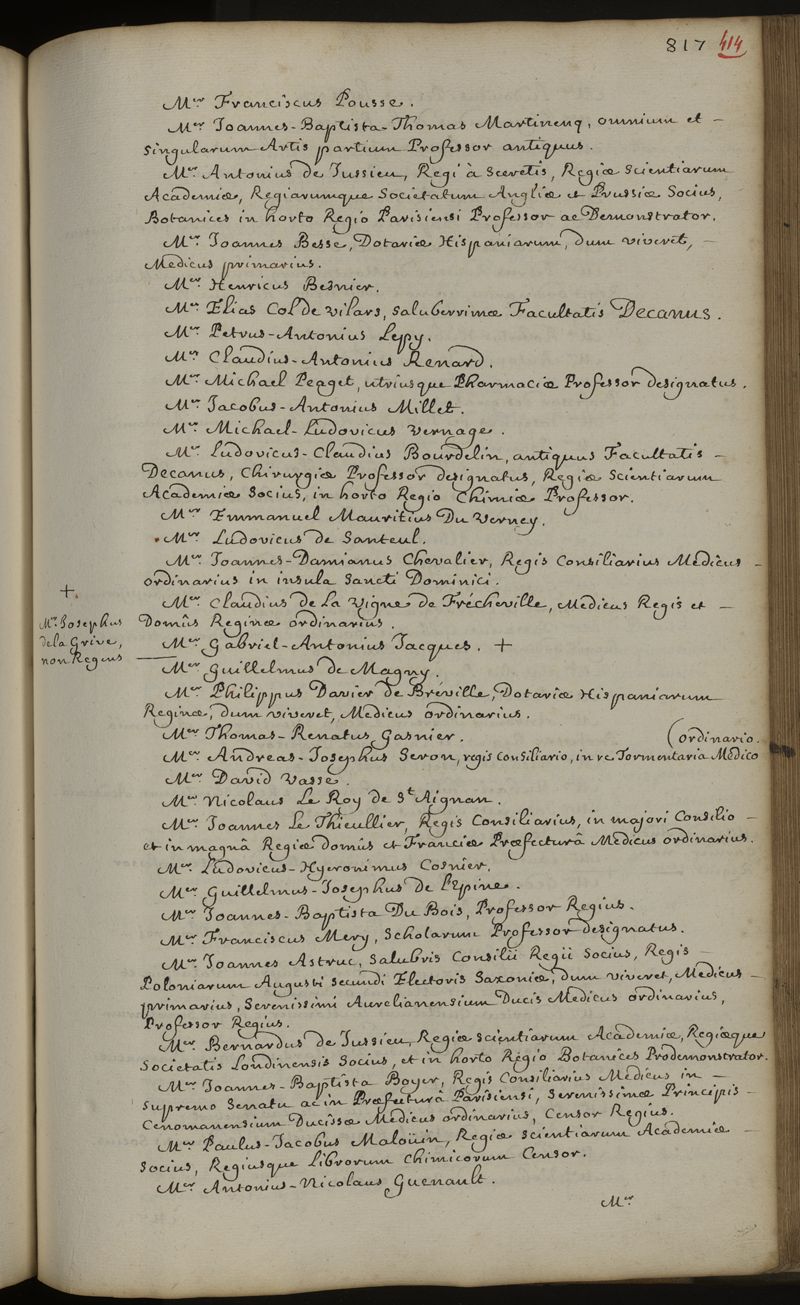 817 414
Mer Franciscus Pousse.
Mer Joannes-Baptista-Thomas Martinenq, omnium et –
singularum Artis partium Professor antiquus.
Mer Antonius de Jussieu, Regi à Secretis, Regiæ Scientiarum
Academiæ, Regiarumque Societatum Angliæ et Prussiæ Socius,
Botanices in horto Regio Parisiensi Professor ac Demonstrator.
Mer Joannes Besse, Dotariæ Hispaniarum, dum viveret, –
Medicus primarius.
Mer Henricus Besnier.
Mer Elias Col de vilars, saluberrimæ Facultatis Decanus.
Mer Petrus-Antonius Lepy.
Mer Claudius-Antonius Renard.
Mer Michael Peaget, utriusque Pharmaciæ Professor designatus.
Mer Jacobus-Antonius Millet.
Mer Michael-Ludovicus Vernage.
Mer Ludovicus-Claudius Bourdelin, antiquus Facultatis –
Decanus, Chirurgiæ Professor designatus, Regiæ Scientiarum
Academiæ Socius, in horto Regio Chimiæ Professor.
Mer Emmanuel Mauritius Du Verney.
Mer Ludovicus de Santeul.
Mer Joannes-Damianus Chevalier, Regis Consiliarius Medicus –
ordinarius in insula Sancti Dominici.
Mer Claudius de La Vigne de Frécheville, Medicus Regis et –
Domûs Reginæ ordinarius.
Mer Gabriel-Antonius Jacques. +
+
Mer Josephus
de la Grive,
non Regens
Mer Guillelmus de Magny.
Mer Philippus Davier de Bréville, Dotariæ Hispaniarum
Reginæ, dum viveret, Medicus ordinarius.
Mer Thomas-Renatus Gasnier.
(ordinario.
Mer Andreas-Josephus Seron, regis Consiliario, in re Tormentaria Medico
Mer David Vasse.
Mer Nicolaus Le Roy de St Aignan.
Mer Joannes Le Thieullier, Regis Consiliarius, in majori Consilio –
et in magnâ Regiæ domûs et Franciæ Præfecturâ Medicus ordinarius.
Mer Ludovicus-Hyeronimus Cosnier.
Mer Guillelmus-Josephus de l'Epine.
Mer Joannes-Baptista Du Bois, Professor Regius.
Mer Franciscus Mery, Scholarum Professor designatus.
Mer Joannes Astruc, salubris Consilii Regii Socius, Regis –
Poloniarum Augusti secundi Electoris Saxoniæ, dum viveret, Medicus –
primarius, Serenissimi Aurelianensium Ducis Medicus ordinarius,
Professor Regius.
Mer Bernardus de Jussieu, Regiæ scientiarum Academiæ, Regiæque
Societatis Londinensis Socius, et in horto Regio Botanices Prodemonstrator.
Mer Joannes-Baptista Boyer, Regis Consiliarius Medicus in –
Supremo Senatu ac in Præfecturâ Parisiensi, Serenissimæ Principis –
Cenomanensium Ducissæ Medicus ordinarius, Censor Regius.
Mer Paulus-Jacobus Maloüin, Regiæ scientiarum Academiæ –
Socius, Regiusque Librorum Chimicorum Censor.
Mer Antonius-Nicolaus Guenault.
Mer